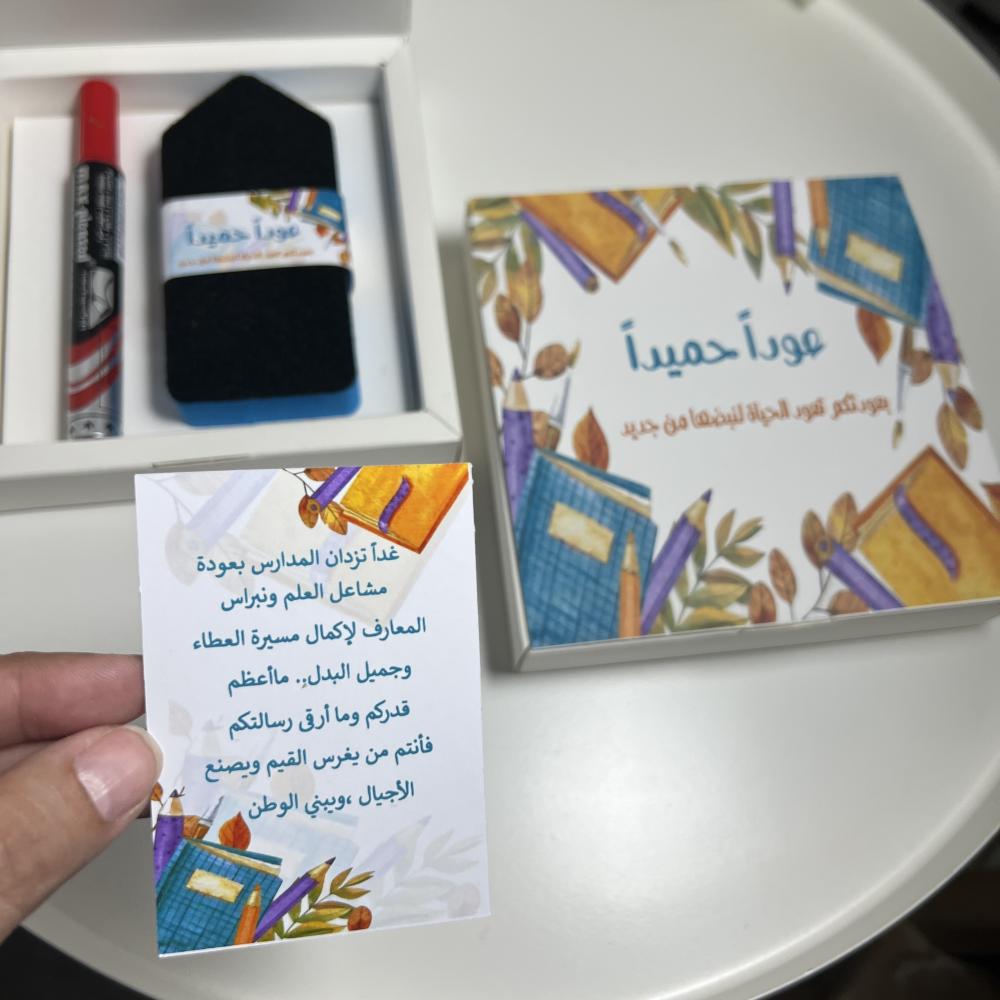 عوداً حميداً
عوداً حميداً
بعودتكم تعود الحياة لنبضها من جديد
غداً تزدان المدارس بعودة
مشاعل العلم ونبراس
المعارف لإكمال مسيرة العطاء
وجميل البدل.. ماأعظم
قدركم وما أرقى رسالتكم
فأنتم من يغرس القيم ويصنع
الأجيال ،ويبني الوطن